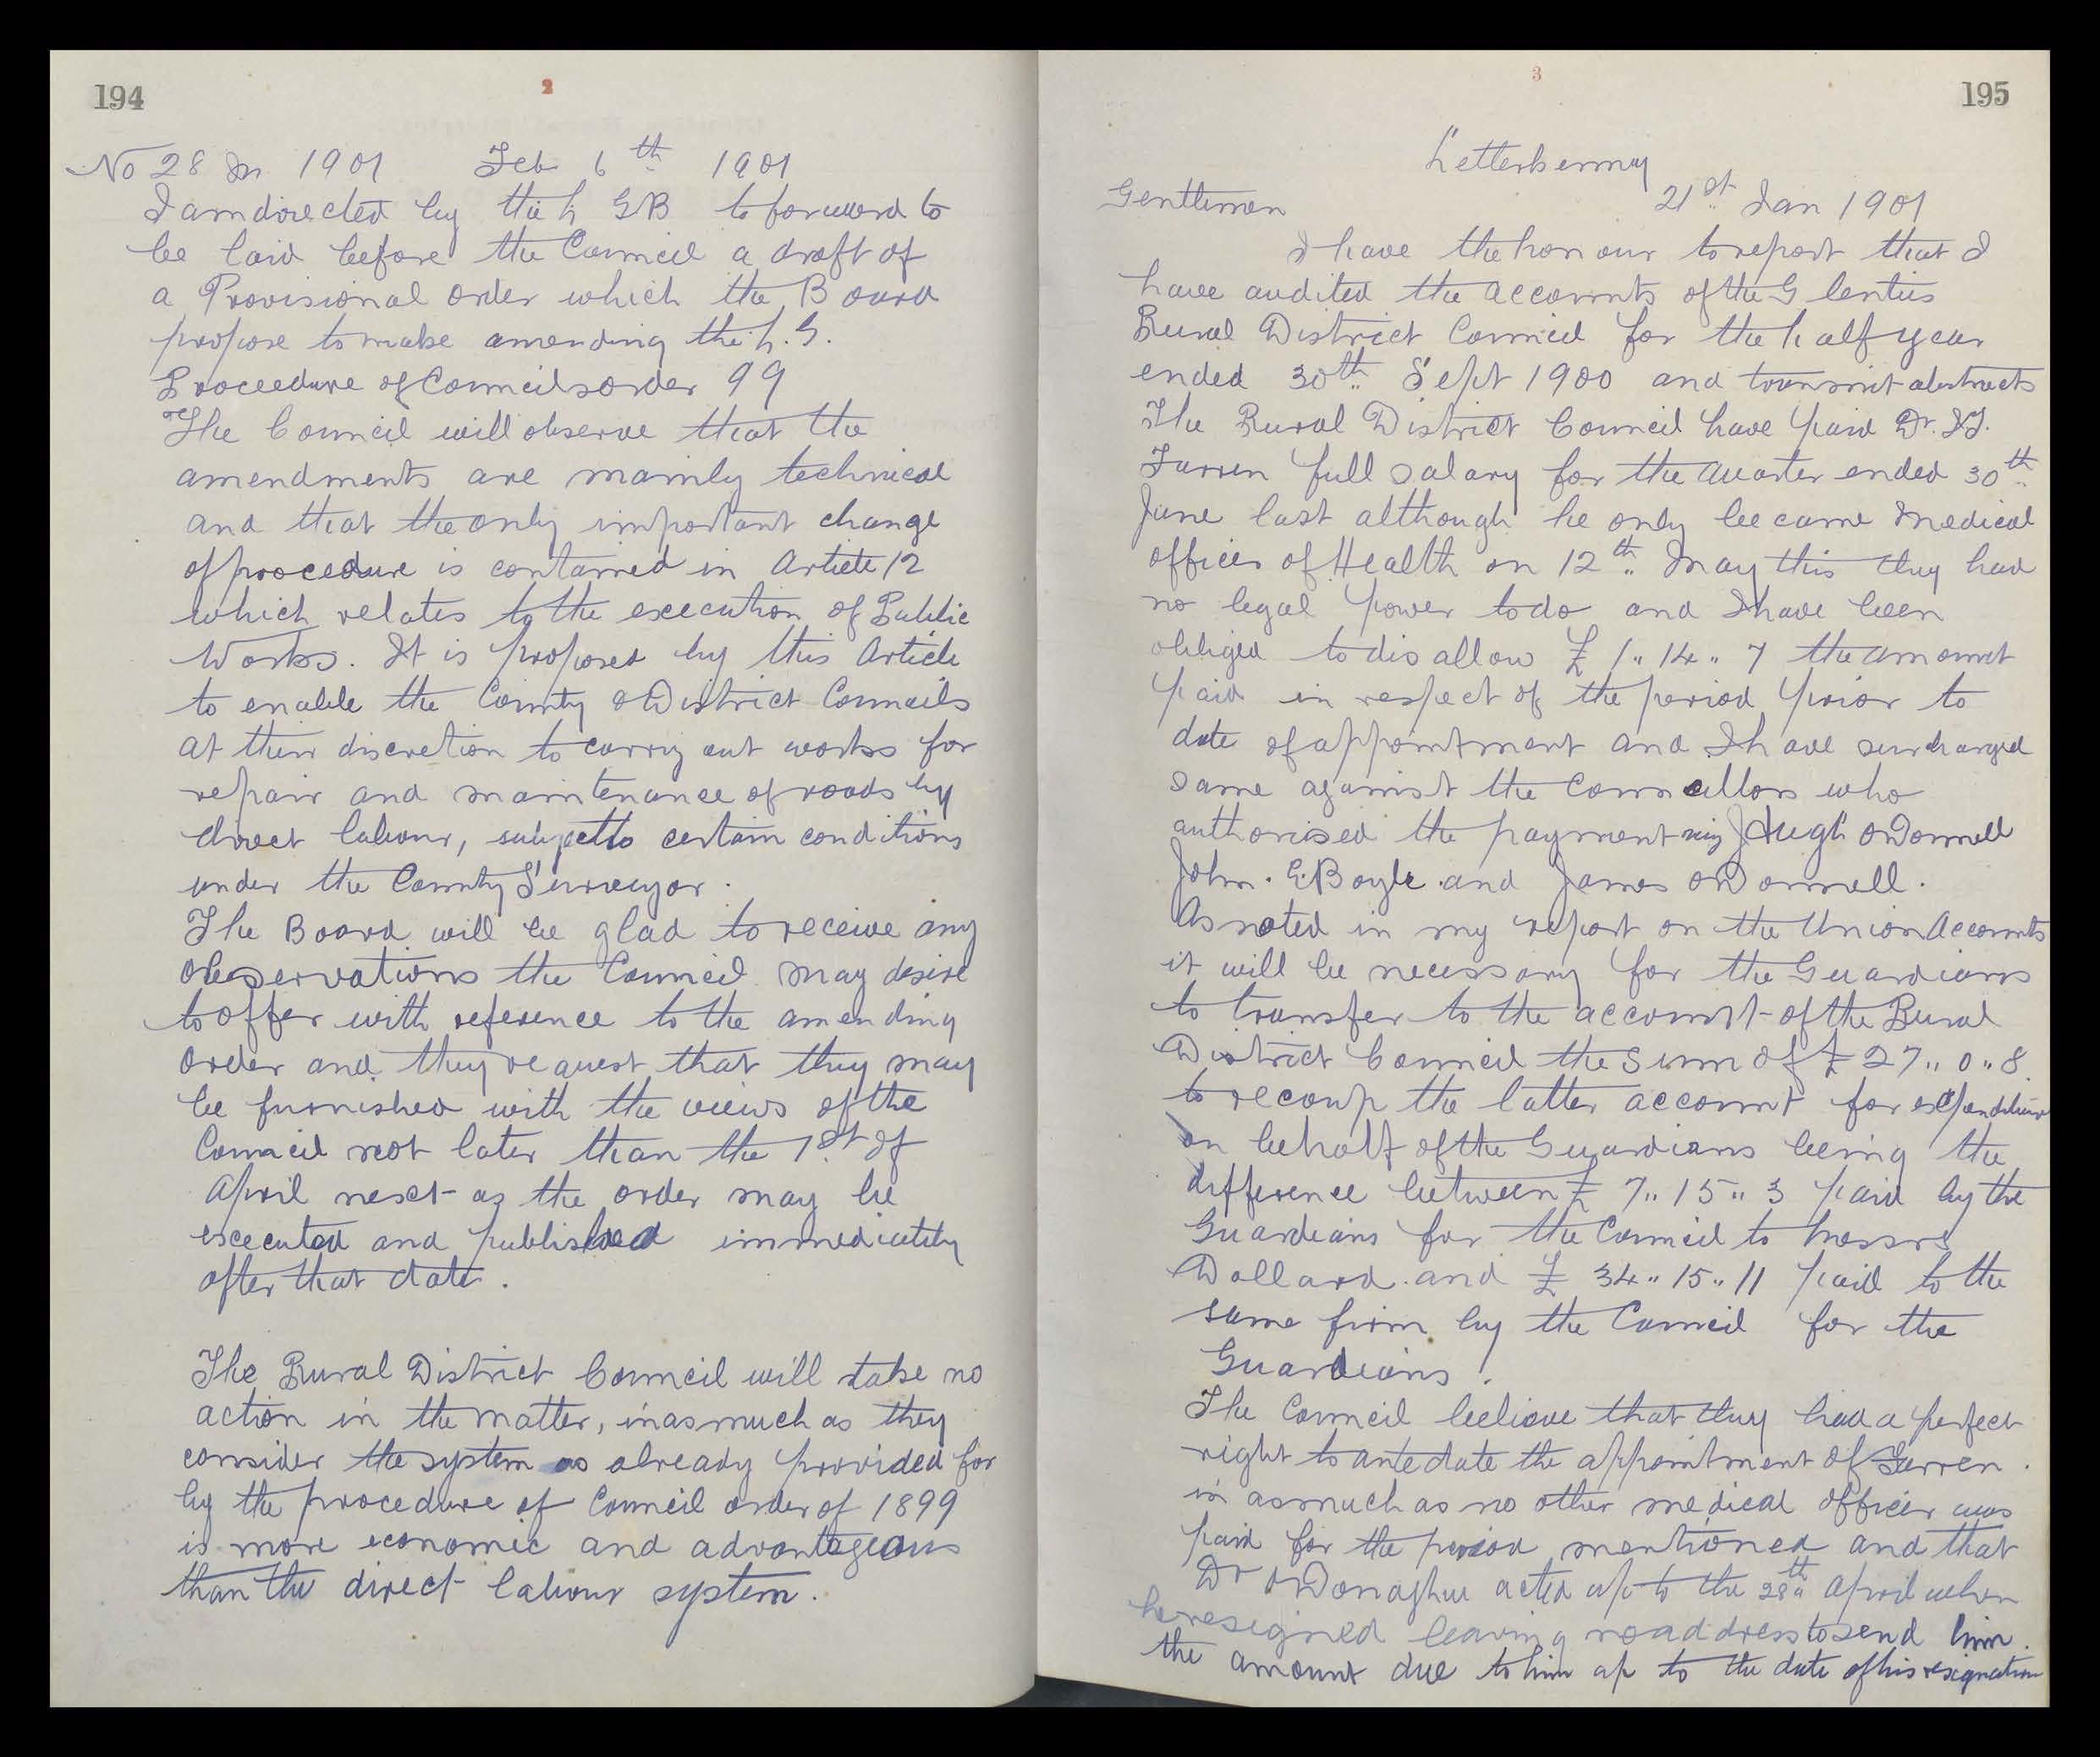 194
2
No 28 M 1901 Feb 6th 1901
I am directed by the L G B to forward to
be laid before the Council a draft of
a Provisional order which the Board
propose to make amending the L. G.
Proceedure of Councils order 99
The Council will observe that the
amendments are mainly technical
and that the only important change
of procedure is contained in Article 12
which relates to the execution of Public
Works. It is proposed by this Article
to enable the County & District Councils
at their discretion to carry out works for
repair and maintenance of roads by
direct labour, subject to certain conditions
under the County Surveyor.
The Board will be glad to receive any
observations the Council may desire
to offer with reference to the amending
order and they request that they may
be furnished with the views of the
Council not later than the 1st of
April next as the order may be
executed and published immediately
after that date.
The Rural District Council will take no
action in the matter, inasmuch as they
consider the system as already provided for
by the procedure of Council order of 1899
is more economic and advantageous
than the direct labour system.
3
195
Letterkenny
Gentlemen 21st Jan 1901
I have the honour to report that I
have audited the accounts of the Glenties
Rural District Council for the half year
ended 30th Sept 1900 and transmit abstracts
The Rural District Council have paid Dr. J.J.
Farren full salary for the quarter ended 30th
June last although he only became Medical
officer of Health on 12th May this they had
no legal power to do and I have been
obliged to disallow £1,, 14,, 7 the amount
paid in respect of the period prior to
date of appointment and I have surcharged
same against the Councillors who
authorised the payment viz Hugh O'Donnell
John. E. Boyle and James O'Donnell.
As noted in my report on the Union Accounts
it will be necessary for the Guardians
to transfer to the account of the Rural
District Council the sum of £27,, 0,, 8
to recoup the latter account for expenditure
on behalf of the Guardians being the
difference between £7,, 15,, 3 paid by the
Guardians for the Council to Messrs
Dollard and £34,, 15,, 11 paid to the
same firm by the Council for the
Guardians.
The Council believe that they had a perfect
right to antedate the appointment of Farren.
in asmuch as no other medical officer was
paid for the period mentioned and that
Dr O'Donaghue acted up to the 28th April when
he resigned leaving no address to send him.
the amount due to him up to the date of his resignation